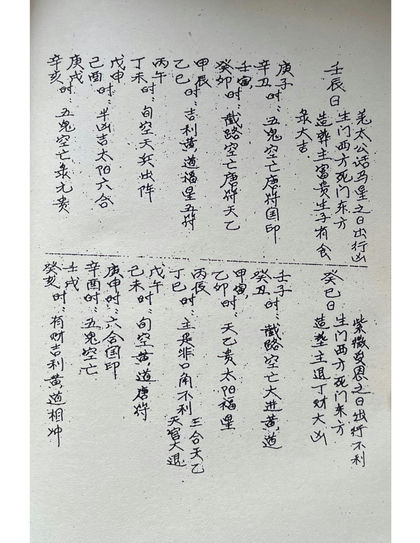 壬辰日
姜太公话马星之日出行凶
生门西方死门东方
造葬主富贵生子有食
禄大吉
庚子时:
辛丑时:五鬼空亡唐符国印
壬寅时:
癸卯时:截路空亡唐符天乙
甲辰时:
乙巳时:吉利黄道福星五符
丙午
丁未时:旬空天兵出阵
戊申时:
己酉时:半凶吉太阳六合
庚戌时:
辛亥时:五鬼空亡禄元贵
癸巳日
紫微受恩之日出行不利
生门西方死门东方
造葬主退丁财大凶
壬子时:
癸丑时:截路空亡大进黄道
甲寅
乙卯时:天乙贵太阳福星
丙辰
丁巳时:主是非口角不利
三合天乙
天官大退
戊午
己未时:旬空黄道唐符
庚申时:六合国印
辛酉时:五鬼空亡
壬戌
癸亥时:有财吉利黄道相冲